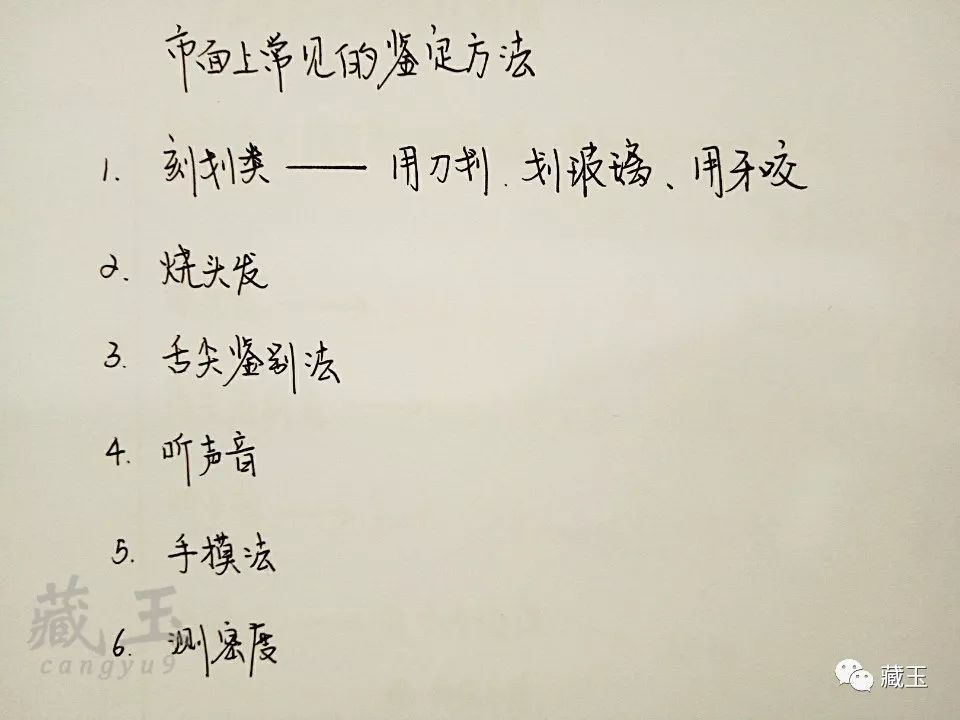 市面上常见的鉴定方法
1. 刻划类 —— 用刀划、划玻璃、用牙咬
2. 烧头发
3. 舌尖鉴别法
4. 听声音
5. 手模法
6. 测密度
藏玉
cangyu9
藏玉